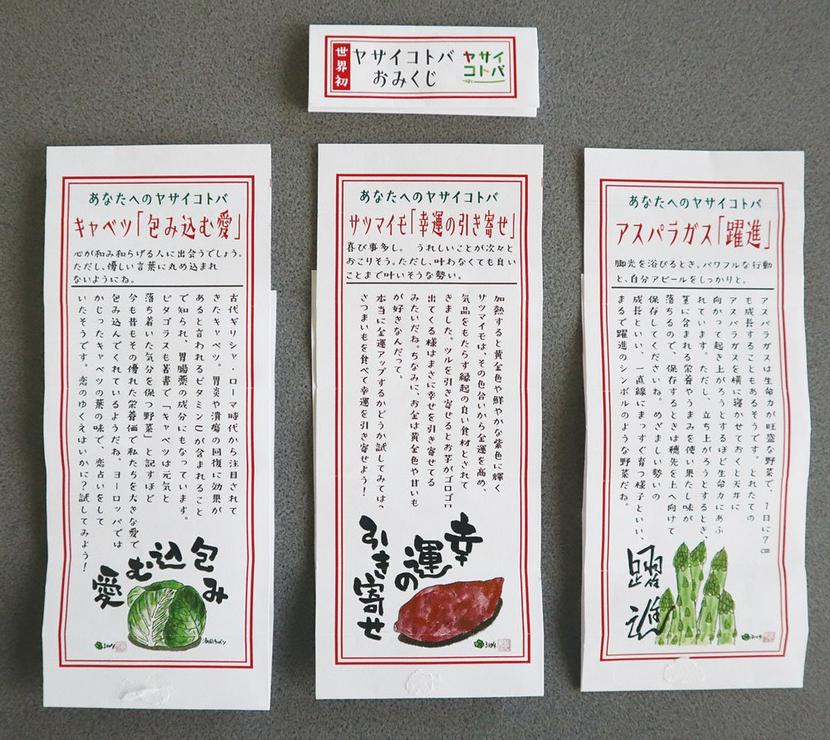 世界初
ヤサイコトバ
おみくじ
ヤサイ
コトバ
あなたへのヤサイコトバ
キャベツ「包み込む愛」
心が和み和らげる人に出会うでしょう。
ただし、優しい言葉に丸め込まれ
ないようにね。
古代ギリシャ・ローマ時代から注目されて
きたキャベツ。胃炎や潰瘍の回復に効果が
あると言われるビタミンUが含まれること
で知られ、胃腸薬の成分にもなっています。
ピタゴラスも著書で「キャベツは元気と
落ち着いた気分を保つ野菜」と記すほど
今も昔もその優れた栄養価で私たちを大きな愛で
包み込んでくれているようだね。ヨーロッパでは
かじったキャベツの葉の味で、恋占いをして
いたそうです。恋のゆくえはいかに?試してみよう!
包み
込む
愛
あなたへのヤサイコトバ
サツマイモ「幸運の引き寄せ」
喜び事多し。うれしいことが次々と
おこりそう。ただし、叶わなくても良い
ことまで叶いそうな勢い。
加熱すると黄金色や鮮やかな紫色に輝く
サツマイモは、その色合いから金運を高め、
気品をもたらす縁起の良い食材とされて
きました。ツルを引き寄せるとお芋がゴロゴロ
出てくる様はまさに幸せを引き寄せてる
みたいだね。ちなみに、お金は黄金色や甘いも
が好きなんだって。
本当に金運アップするかどうか試してみては?
さつまいもを食べて幸運を引き寄せよう!
幸
運の
引き寄せ
あなたへのヤサイコトバ
アスパラガス「躍進」
脚光を浴びるとき。パワフルな行動
と、自分アピールをしっかりと。
アスパラガスは生命力が旺盛な野菜で、1日に7cm
も成長することもあるそうです。とれたての
アスパラガスを横に寝かせておくと天井に
向かって起き上がろうとするほど生命力にあふ
れています。ただし、立ち上がろうとするとき、
茎に含まれる栄養やうまみを使い果たし味が
落ちるので、保存するときは穂先を上へ向けて
保存してくださいね。めざましい勢いの
成長といい、一直線にまっすぐ育つ様子といい、
まるで躍進のシンボルのような野菜だね。
躍
進